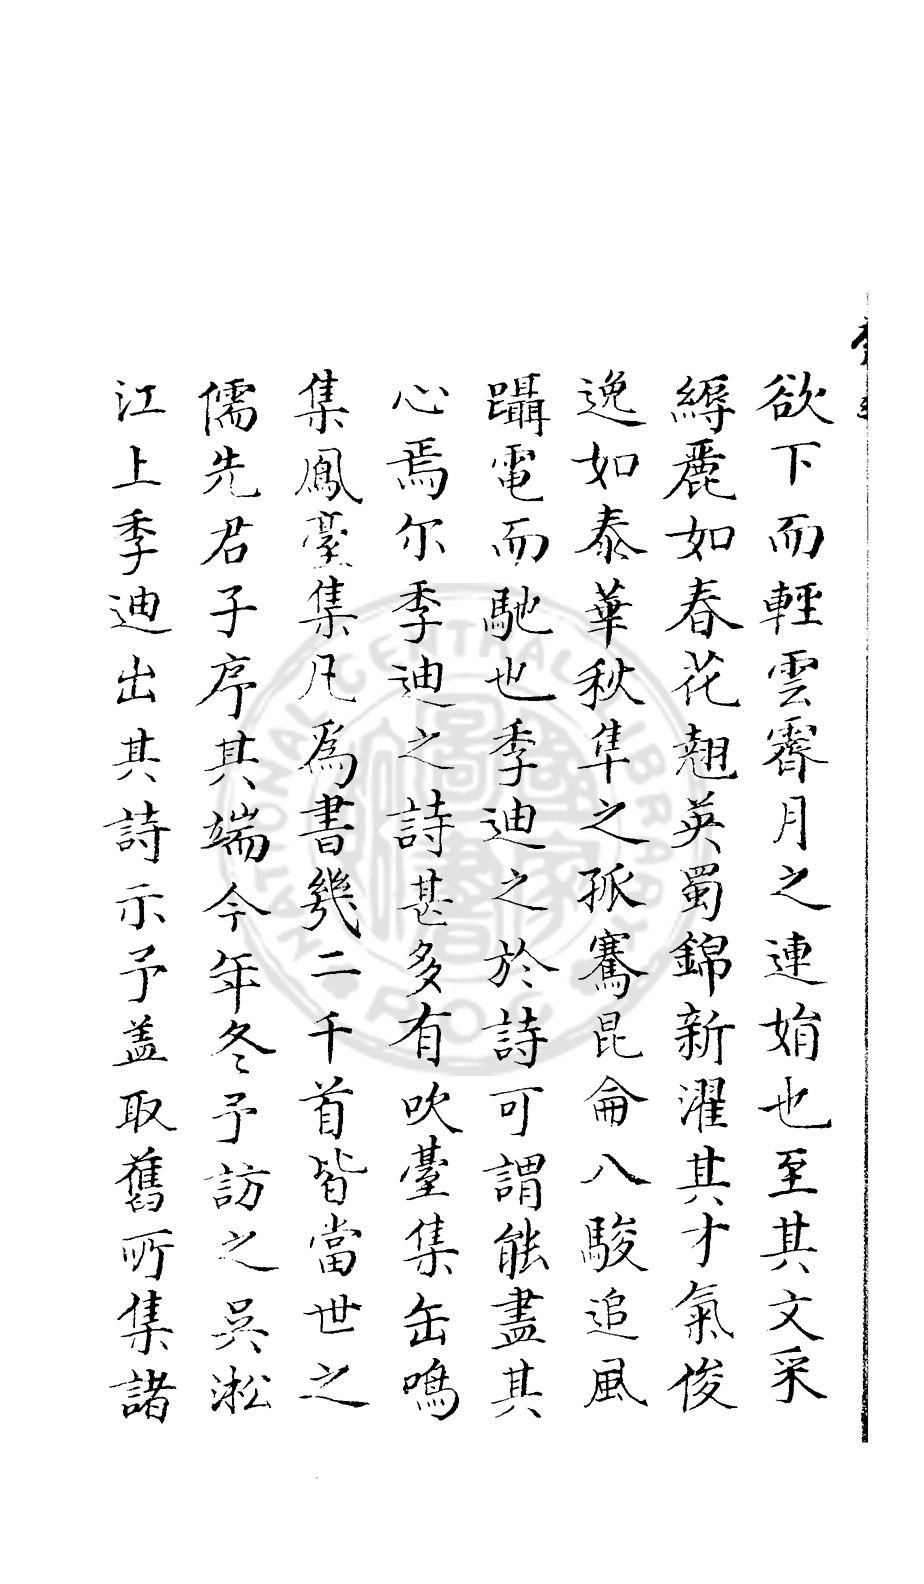 欲下而輕雲霽月之連娟也至其文采
縟麗如春花翹英蜀錦新濯其才氣俊
逸如泰華秋隼之孤騫昆侖八駿追風
躡電而馳也季迪之於詩可謂能盡其
心焉尔季迪之詩甚多有吹臺集缶鳴
集鳳臺集凡爲書幾二千首皆當世之
儒先君子序其端今年冬予訪之吳淞
江上季迪出其詩示予盖取舊所集諸
NATIONAL CENTRAL LIBRARY
R.O.C